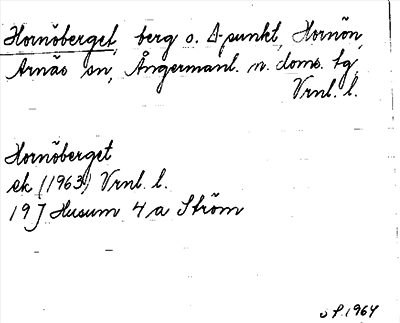 Hornöberget, berg o. Δ-punkt, Hornön,
Arnäs sn, Ångermanl. n. doms. tg,
Vrnl. l.
Hornöberget
ek (1963) Vrnl. l.
19 J Husum 4 a Ström
1964